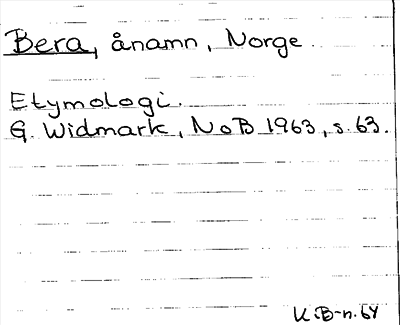 Bera, ånamn, Norge.
Etymologi.
G. Widmark, NoB 1963, s. 63.
K.B-n. 64